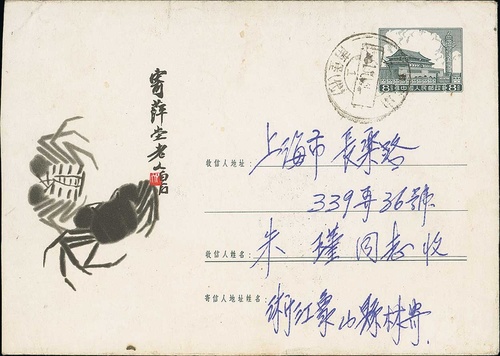 8 中國人民郵政 8
寄萍堂老人
收信人地址：上海市 長樂路
339弄36號
收信人姓名：朱 瑾 同志收
寄信人地址姓名：浙江象山縣林